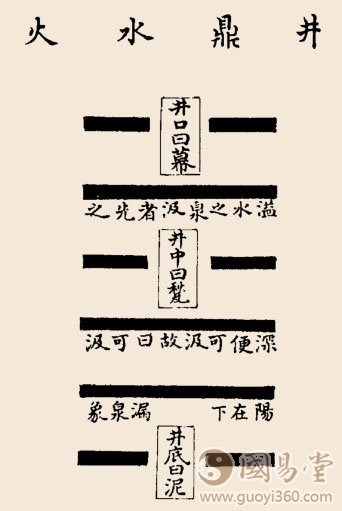 井鼎水火
井口曰幕
溢水之泉汲者先之
井中曰甃
深便可汲故曰可汲
陽在下 漏泉象
井底曰泥
國易堂
www.guoyi360.com